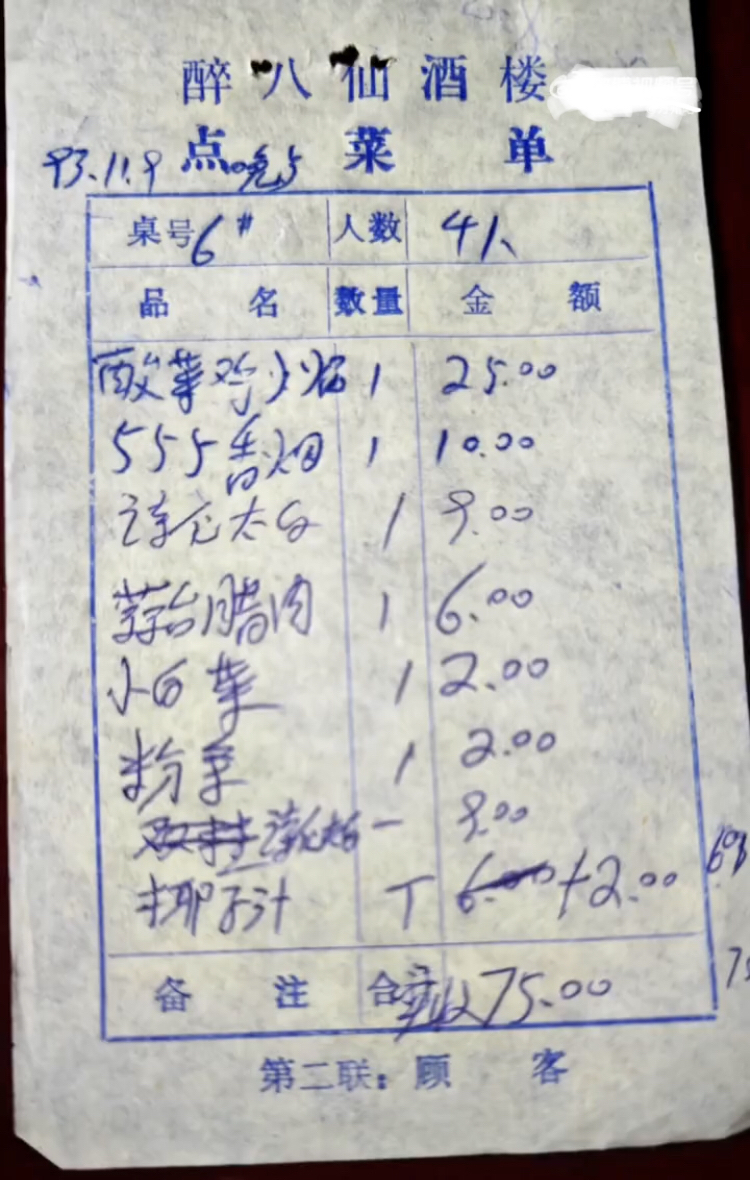 醉八仙酒楼
点菜单
93.11.9 晚5
桌号 6# 人数 4人
品名 数量 金额
酸菜鸡火锅 1 25.00
555香烟 1 10.00
诗仙太白 1 9.00
蒜苔腊肉 1 6.00
小白菜 1 2.00
粉条 1 2.00
诗仙太白 一 9.00
椰子汁 T 6.00 12.00
备注 合计 实收75.00
第二联：顾客